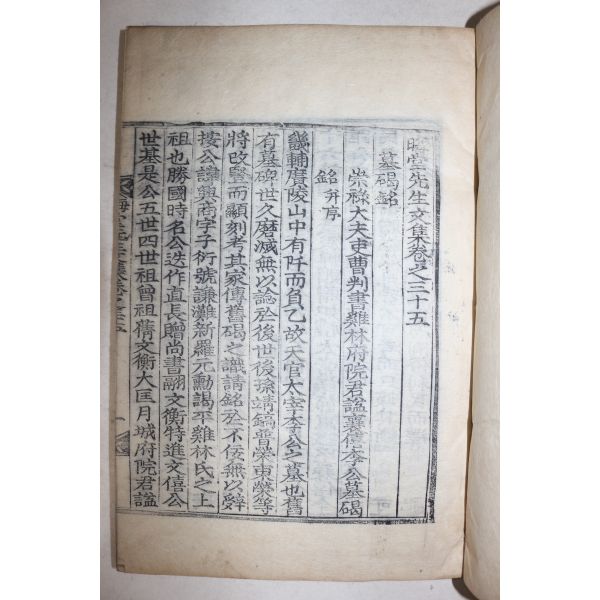 晦堂先生文集卷之三十五
墓碣銘
崇祿大夫吏曹判書雞林府院君諡襄僖李公墓碣
銘幷序
畿輔廣陵山中有阡而負乙故天官太宰李公之墓也舊
有墓碑世久磨滅無以論於後世後孫靖鎬晋榮東榮等
將改竪而顯刻者其家傳舊碣之識請銘於不侫無以辭
按公諱興商字子衍號謙灘新羅元勳謁平雞林氏之上
祖也勝國時名公迭作直長贈尚書翮文衡特進文僖公
世基是公五世四世祖曾祖蒨文衡大匡月城府院君諡